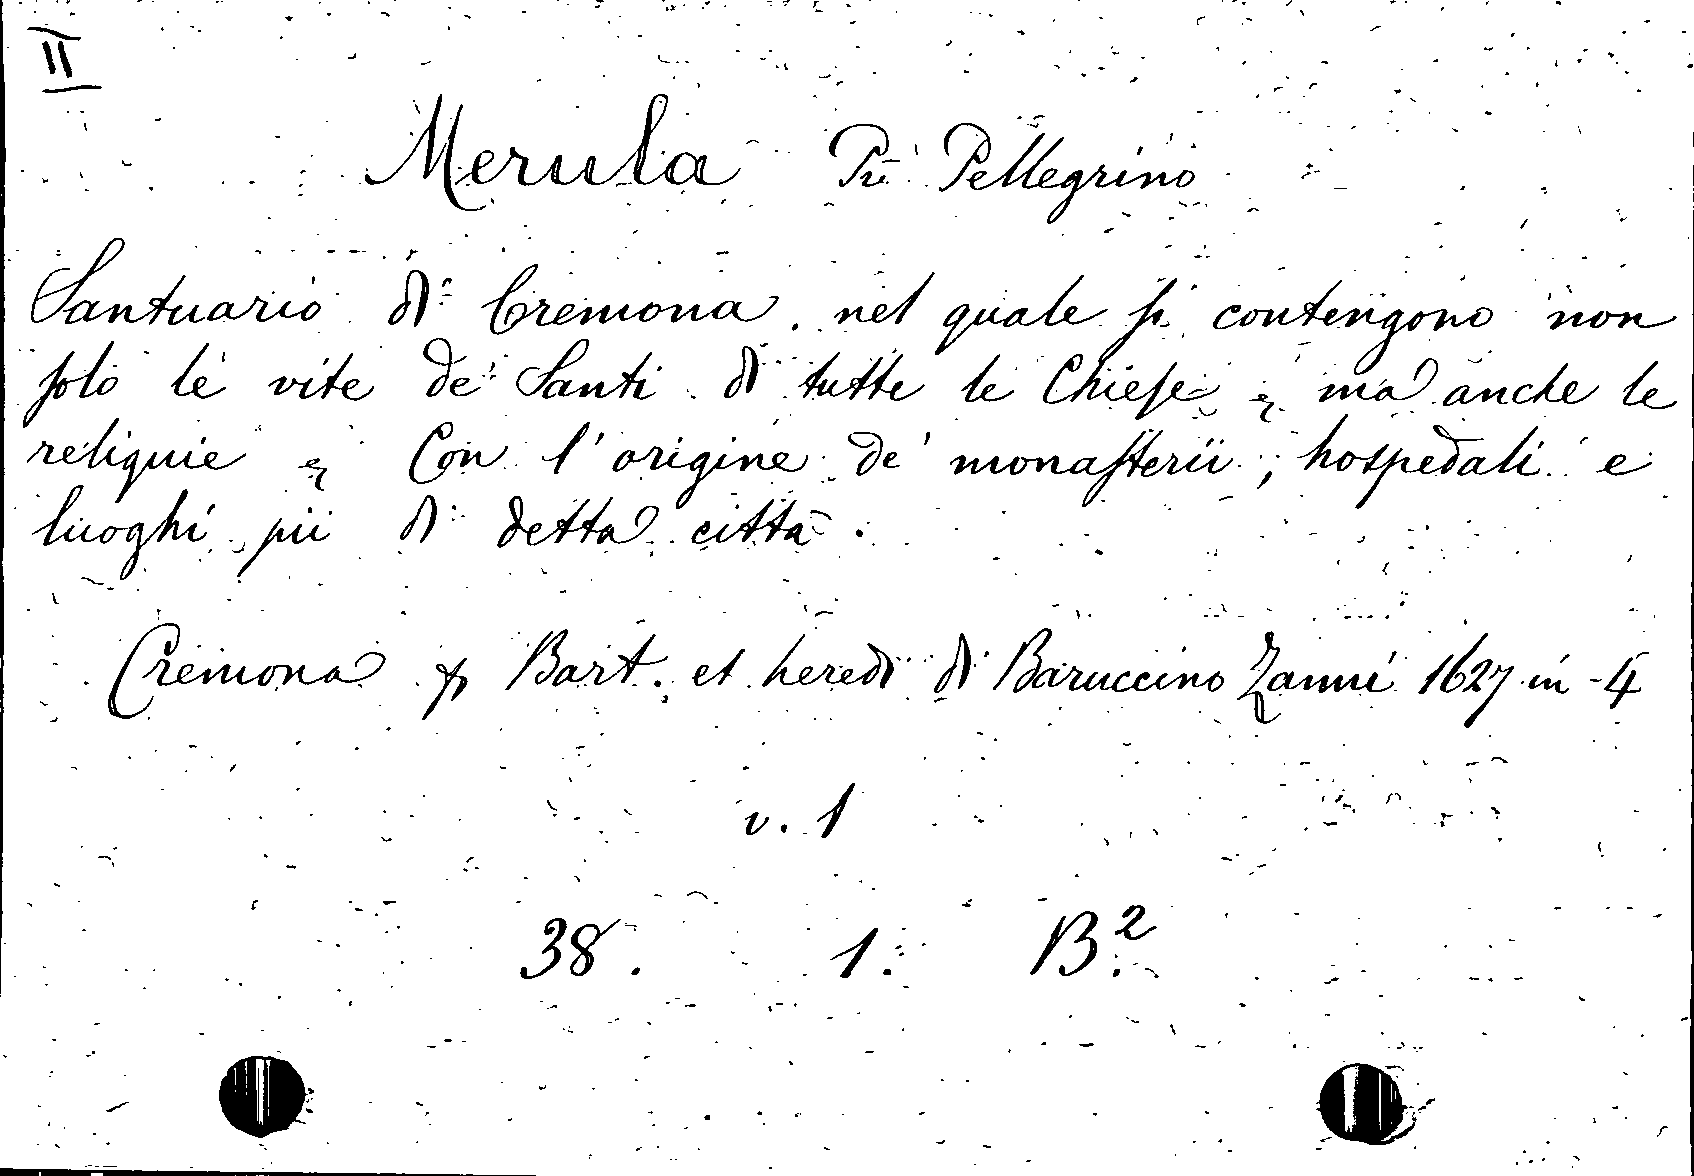 II
Merula Pre Pellegrino
Santuario di Cremona nel quale si contengono non
solo le vite de' Santi di tutte le Chiese & ma anche le
reliquie & Con l'origine de' monasterii, hospedali e
luoghi pii di detta città.
Cremona p Bart. et heredi di Baruccino Zanni 1627 in-4
v. 1
38. 1. B.²